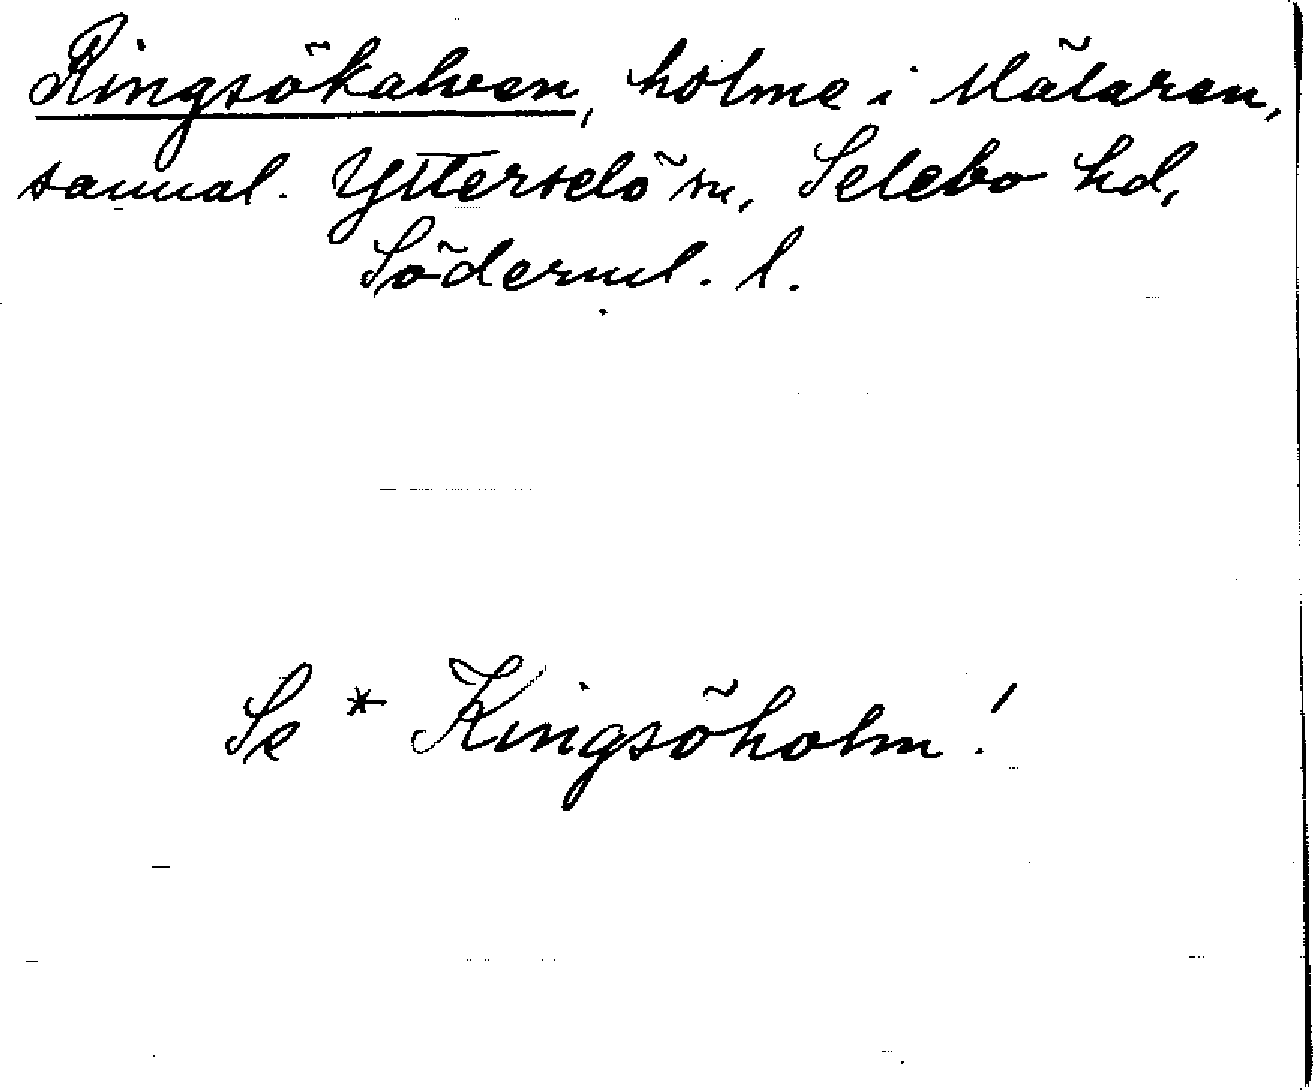 Ringsökalven, holme i Mälaren,
sannol. Ytterselö sn, Selebo hd,
Söderml. l.
Se * Kingsöholm!